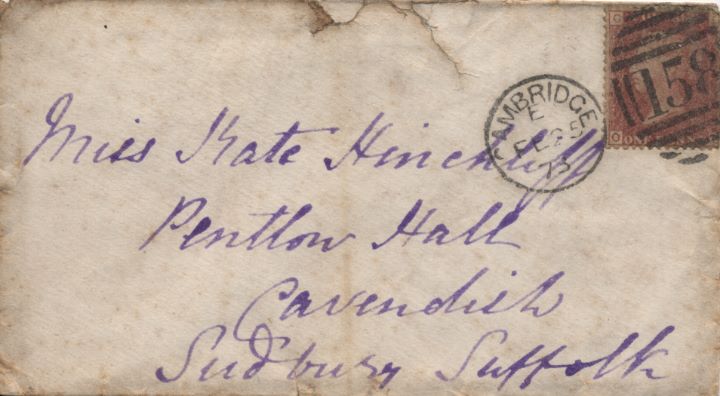 Miss Kate Hinchliff
Pentlow Hall
Cavendish
Sudbury Suffolk
CAMBRIDGE
E
FE 25
73
158